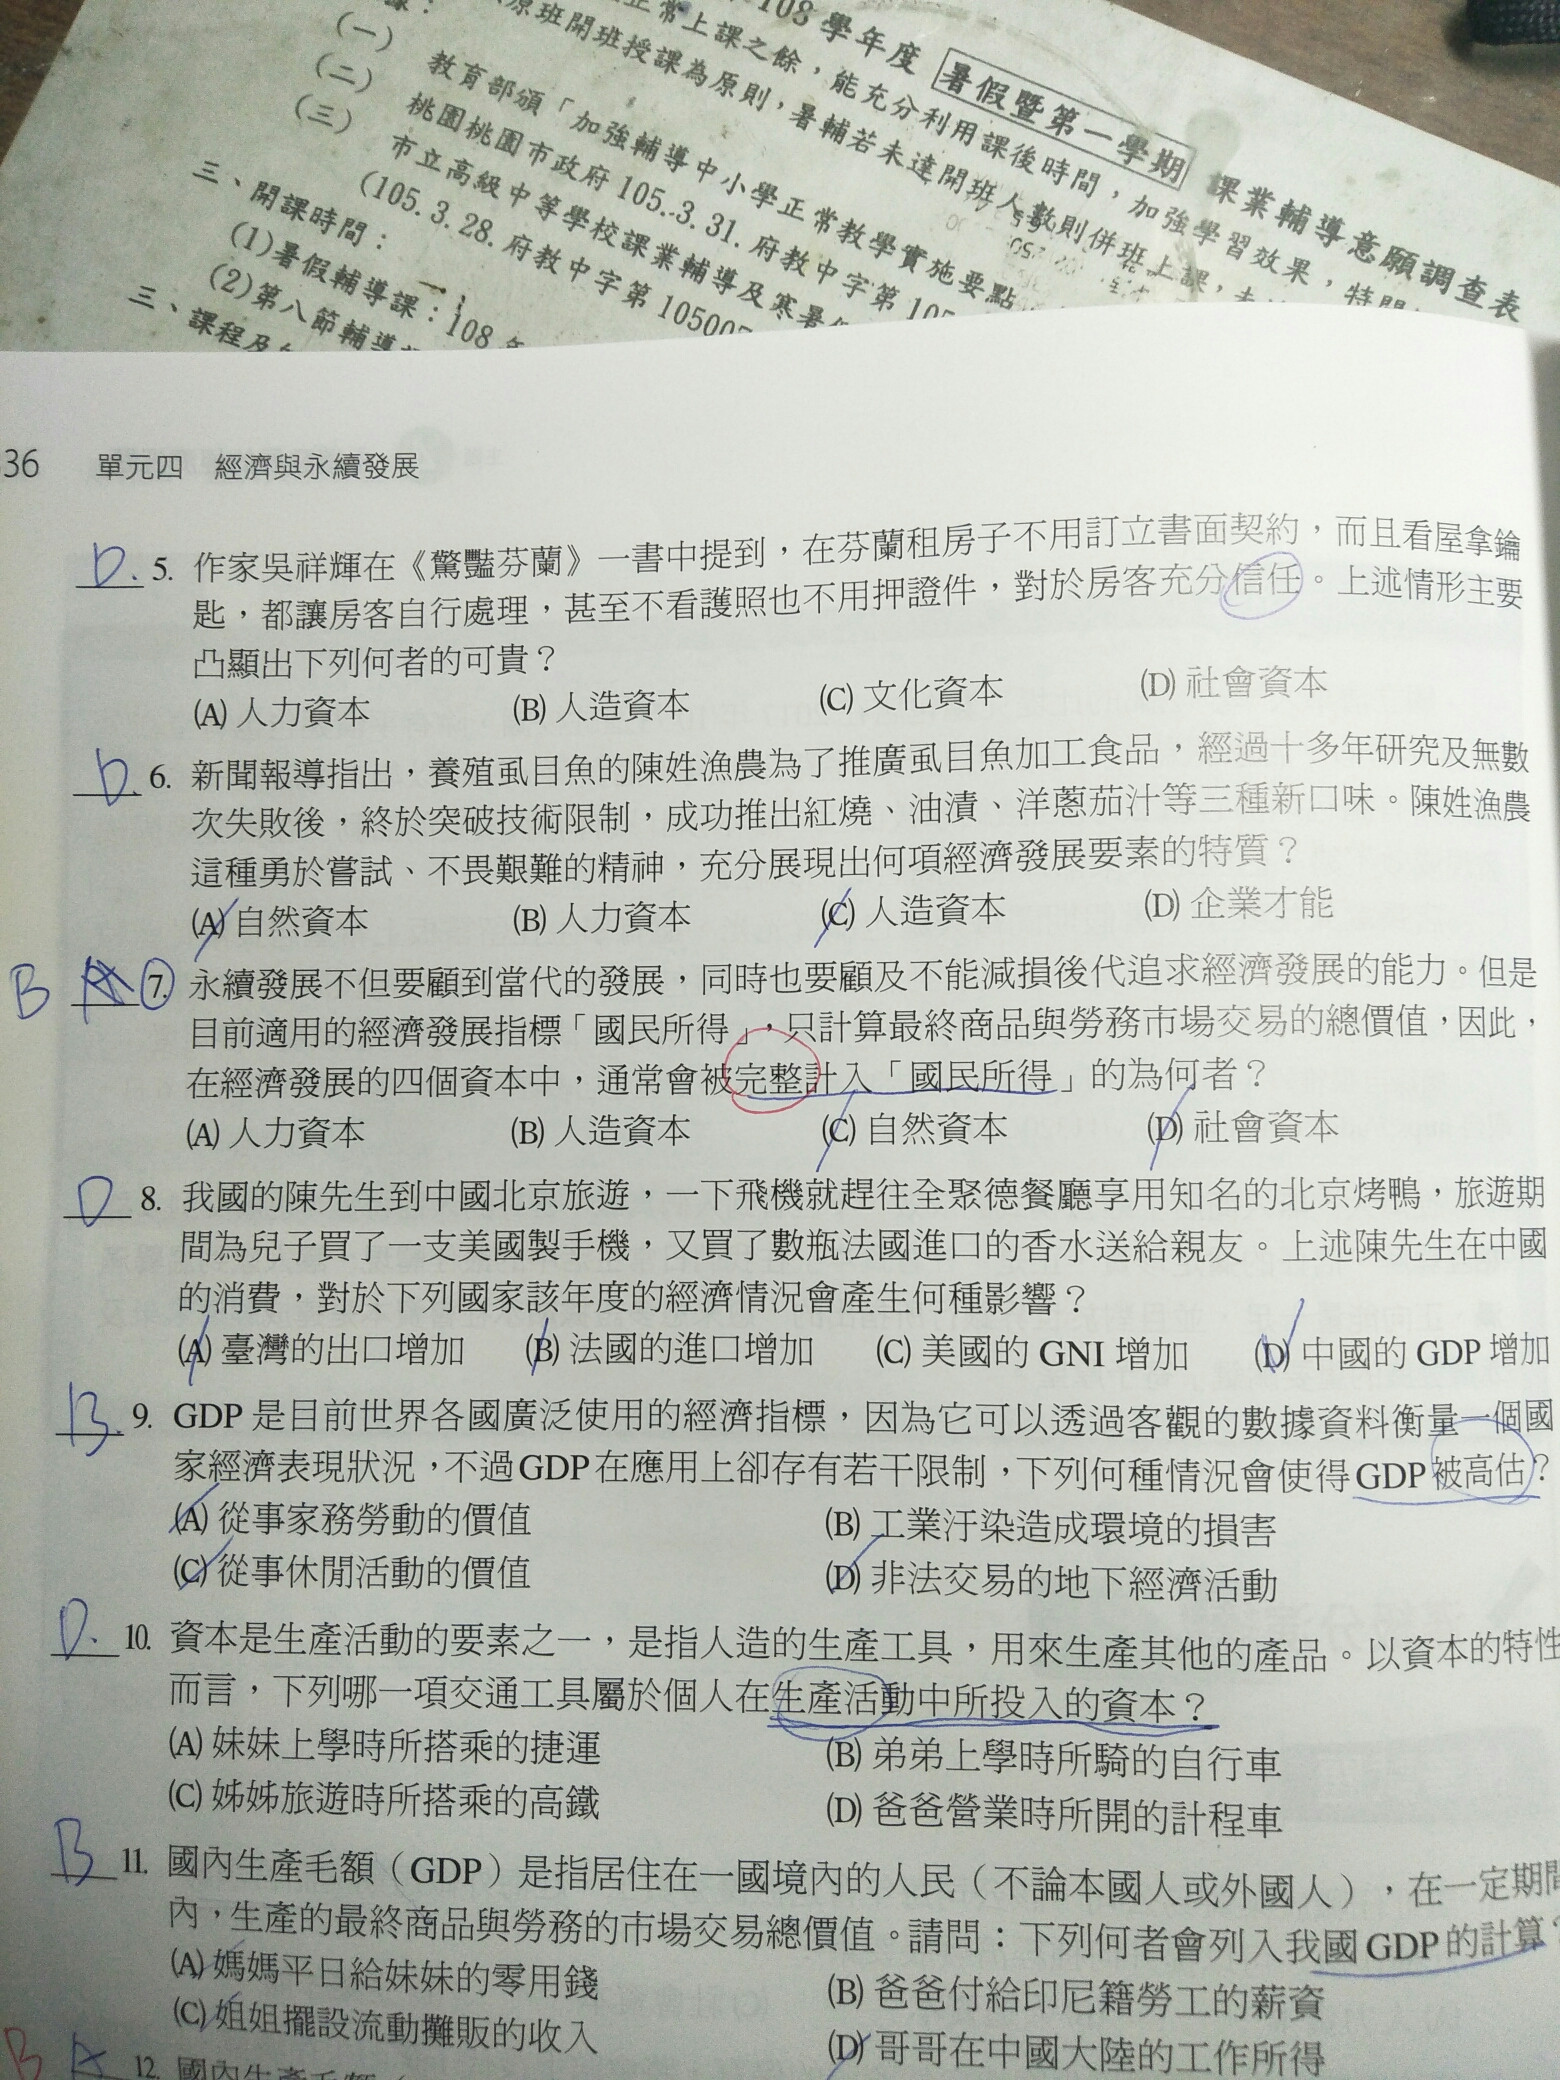 108 學年度 暑假暨第一學期 課業輔導意願調查表
正常上課之餘，能充分利用課後時間，加強學習效果，特開
(一) 原班開班授課為原則，暑輔若未達開班人數則併班上課，
(二) 教育部頒「加強輔導中小學正常教學實施要點
(三) 桃園桃園市政府 105..3.31. 府教中字第 105
市立高級中等學校課業輔導及寒暑
(105.3.28. 府教中字第 10500
三、開課時間：
(1)暑假輔導課：108 年
(2)第八節輔導
三、課程及
36 單元四 經濟與永續發展
D. 5. 作家吳祥輝在《驚豔芬蘭》一書中提到，在芬蘭租房子不用訂立書面契約，而且看屋拿鑰
匙，都讓房客自行處理，甚至不看護照也不用押證件，對於房客充分信任。上述情形主要
凸顯出下列何者的可貴？
(A) 人力資本 (B) 人造資本 (C) 文化資本 (D) 社會資本
D. 6. 新聞報導指出，養殖虱目魚的陳姓漁農為了推廣虱目魚加工食品，經過十多年研究及無數
次失敗後，終於突破技術限制，成功推出紅燒、油漬、洋蔥茄汁等三種新口味。陳姓漁農
這種勇於嘗試、不畏艱難的精神，充分展現出何項經濟發展要素的特質？
(A) 自然資本 (B) 人力資本 (C) 人造資本 (D) 企業才能
B A 7. 永續發展不但要顧到當代的發展，同時也要顧及不能減損後代追求經濟發展的能力。但是
目前適用的經濟發展指標「國民所得」，只計算最終商品與勞務市場交易的總價值，因此，
在經濟發展的四個資本中，通常會被完整計入「國民所得」的為何者？
(A) 人力資本 (B) 人造資本 (C) 自然資本 (D) 社會資本
D 8. 我國的陳先生到中國北京旅遊，一下飛機就趕往全聚德餐廳享用知名的北京烤鴨，旅遊期
間為兒子買了一支美國製手機，又買了數瓶法國進口的香水送給親友。上述陳先生在中國
的消費，對於下列國家該年度的經濟情況會產生何種影響？
(A) 臺灣的出口增加 (B) 法國的進口增加 (C) 美國的 GNI 增加 (D) 中國的 GDP 增加
B. 9. GDP 是目前世界各國廣泛使用的經濟指標，因為它可以透過客觀的數據資料衡量一個國
家經濟表現狀況，不過 GDP 在應用上卻存有若干限制，下列何種情況會使得 GDP 被高估？
(A) 從事家務勞動的價值 (B) 工業汙染造成環境的損害
(C) 從事休閒活動的價值 (D) 非法交易的地下經濟活動
D. 10. 資本是生產活動的要素之一，是指人造的生產工具，用來生產其他的產品。以資本的特性
而言，下列哪一項交通工具屬於個人在生產活動中所投入的資本？
(A) 妹妹上學時所搭乘的捷運 (B) 弟弟上學時所騎的自行車
(C) 姊姊旅遊時所搭乘的高鐵 (D) 爸爸營業時所開的計程車
B 11. 國內生產毛額（GDP）是指居住在一國境內的人民（不論本國人或外國人），在一定期間
內，生產的最終商品與勞務的市場交易總價值。請問：下列何者會列入我國 GDP 的計算？
(A) 媽媽平日給妹妹的零用錢 (B) 爸爸付給印尼籍勞工的薪資
(C) 姐姐擺設流動攤販的收入 (D) 哥哥在中國大陸的工作所得
B A 12. 國內生產毛額（